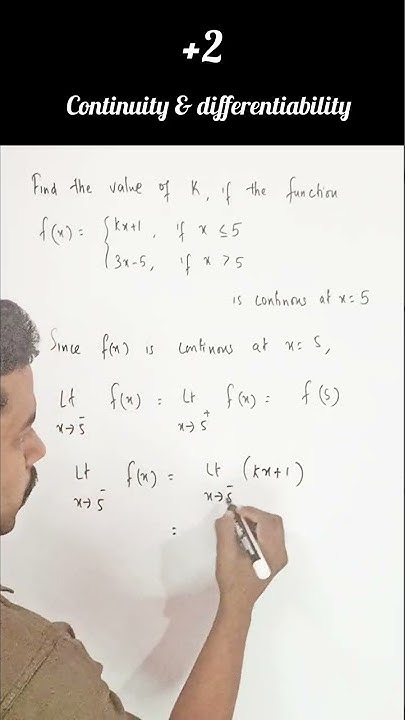 +2
Continuity & differentiability
Find the value of K, if the function
f(x) = { kx+1, if x ≤ 5
3x-5, if x > 5
is continous at x = 5
Since f(x) is continous at x = 5,
Lt x→5⁻ f(x) = Lt x→5⁺ f(x) = f(5)
Lt x→5⁻ f(x) = Lt x→5⁻ (kx+1)
=